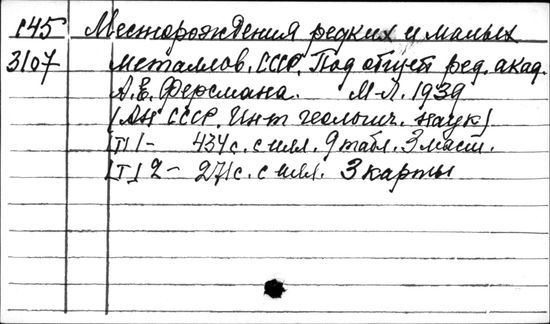 с45 Месторождения редких и малых
3107 металлов. СССР. Под общей ред. акад.
А.Е. Ферсмана. М-Л. 1939
(АН СССР. Инт геологич. наук)
[Т] 1 - 434 с. с илл. 9 табл. 3 маст.
[Т] 2 - 271 с. с илл. 3 карты